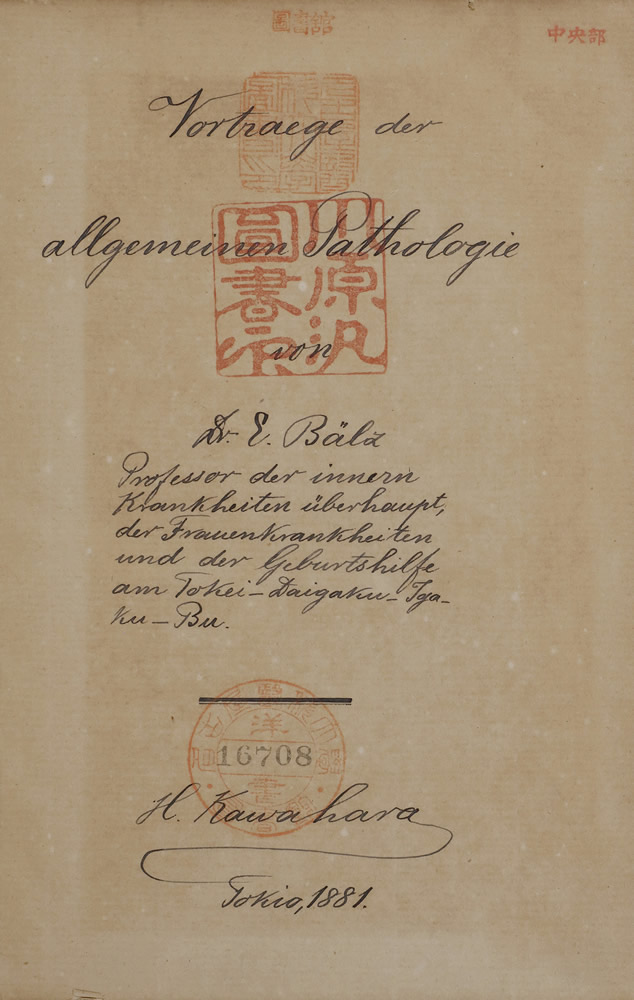 圖書館
中央部
Vortraege der
allgemeinen Pathologie
川原汎
圖書印
von
Dr. E. Bälz
Professor der innern
Krankheiten überhaupt,
der Frauenkrankheiten
und der Geburtshilfe
am Tokei-Daigaku-Iga-
ku-Bu.
洋
16708
書
H. Kawahara
Tokio, 1881.